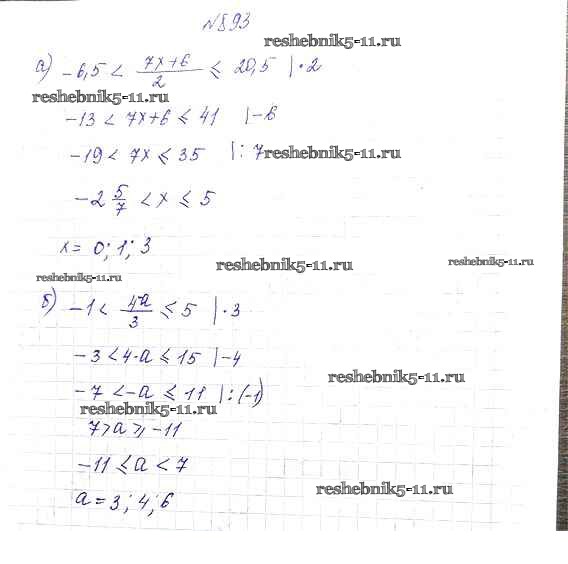 №893
reshebnik5-11.ru
а) -6,5 < (7x+6)/2 ≤ 20,5 | ·2
reshebnik5-11.ru
-13 < 7x+6 ≤ 41 | -6
-19 < 7x ≤ 35 | : 7 reshebnik5-11.ru
-2 5/7 < x ≤ 5
x = 0; 1; 3
reshebnik5-11.ru reshebnik5-11.ru
reshebnik5-11.ru
б) -1 < 4-a/3 ≤ 5 | ·3
-3 < 4-a ≤ 15 | -4
reshebnik5-11.ru
-7 < -a ≤ 11 | : (-1)
reshebnik5-11.ru
7 > a ≥ -11
-11 ≤ a < 7
reshebnik5-11.ru
a = 3; 4; 6